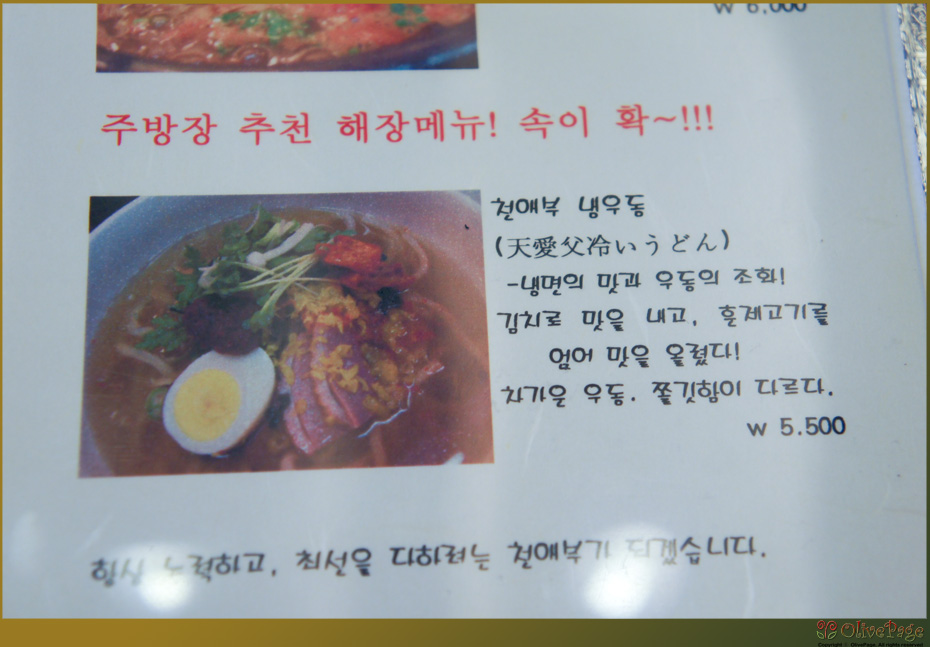 ₩ 6,000
주방장 추천 해장메뉴! 속이 확~!!!
천애부 냉우동
(天愛父冷いうどん)
-냉면의 맛과 우동의 조화!
김치로 맛을 내고, 훈제고기를
얹어 맛을 올렸다!
차가운 우동. 쫄깃함이 다르다.
₩ 5.500
항상 노력하고, 최선을 다하려는 천애부가 되겠습니다.
OlivePage
Copyright © OlivePage. All rights reserved.